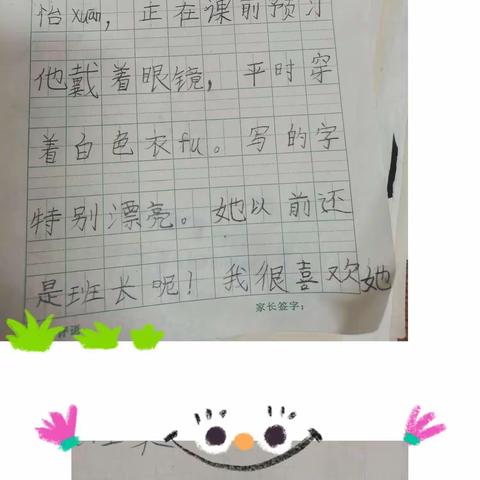 怡xuān，正在课前预习
他戴着眼镜，平时穿
着白色衣fu。写的字
特别漂亮。她以前还
是班长呢！我很喜欢她
家长签字：
评语